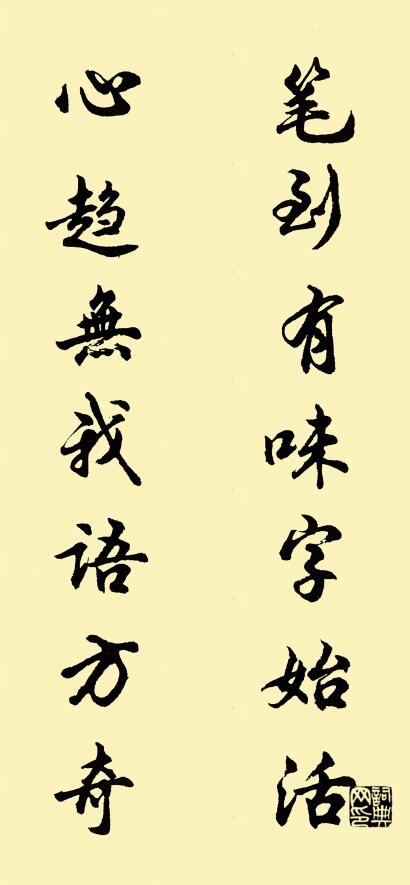 笔到有味字始活
心趋無我语方奇
詞典网印